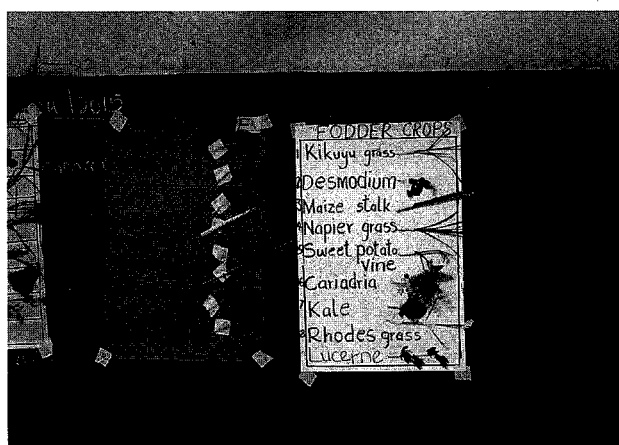 /2015
FODDER CROPS
Kikuyu grass
Desmodium
Maize stalk
Napier grass
Sweet potato
vine
Cariadria
Kale
Rhodes grass
Lucerne